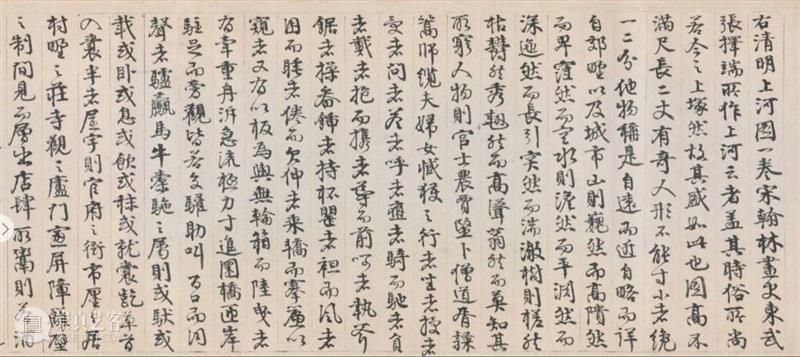 右清明上河圖一卷宋翰林畫史東武
張擇端所作上河云者蓋其時俗所尚
若今之上塚然故其盛如此也圖高不
滿尺長二丈有奇人形不能寸小者纔
一二分他物稱是自遠而近自略而詳
自郊野以及城市山則巍然而高隤然
而卑窪然而空水則澹然而平淵然而
深迤然而長引突然而湍激樹則槎然
枯鬱然秀翹然而高聳蓊然而莫知其
所窮人物則官士農賈醫卜僧道胥隸
篙師纜夫婦女臧獲之行者坐者授者
受者問者答者呼者應者騎而馳者負
者戴者抱而攜者導而前呵者執斧
鋸者操畚鍤者持杯罌者袒而風者
困而睡者倦而欠伸者乘轎而搴簾以
窺者又有以板為輿無輪箱而陸曳者
有牽重舟泝急流極力寸進圜橋匝岸
駐足而旁觀皆若交驩助叫百口而同
聲者驢驘馬牛橐駝之屬則或馱或
載或臥或息或飲或秣或就囊齕草首
入囊半者屋宇則官府之衙市廛之居
村野之莊寺觀之廬門窗屏障籬壁
之制間見而層出店肆所鬻則
真艺客